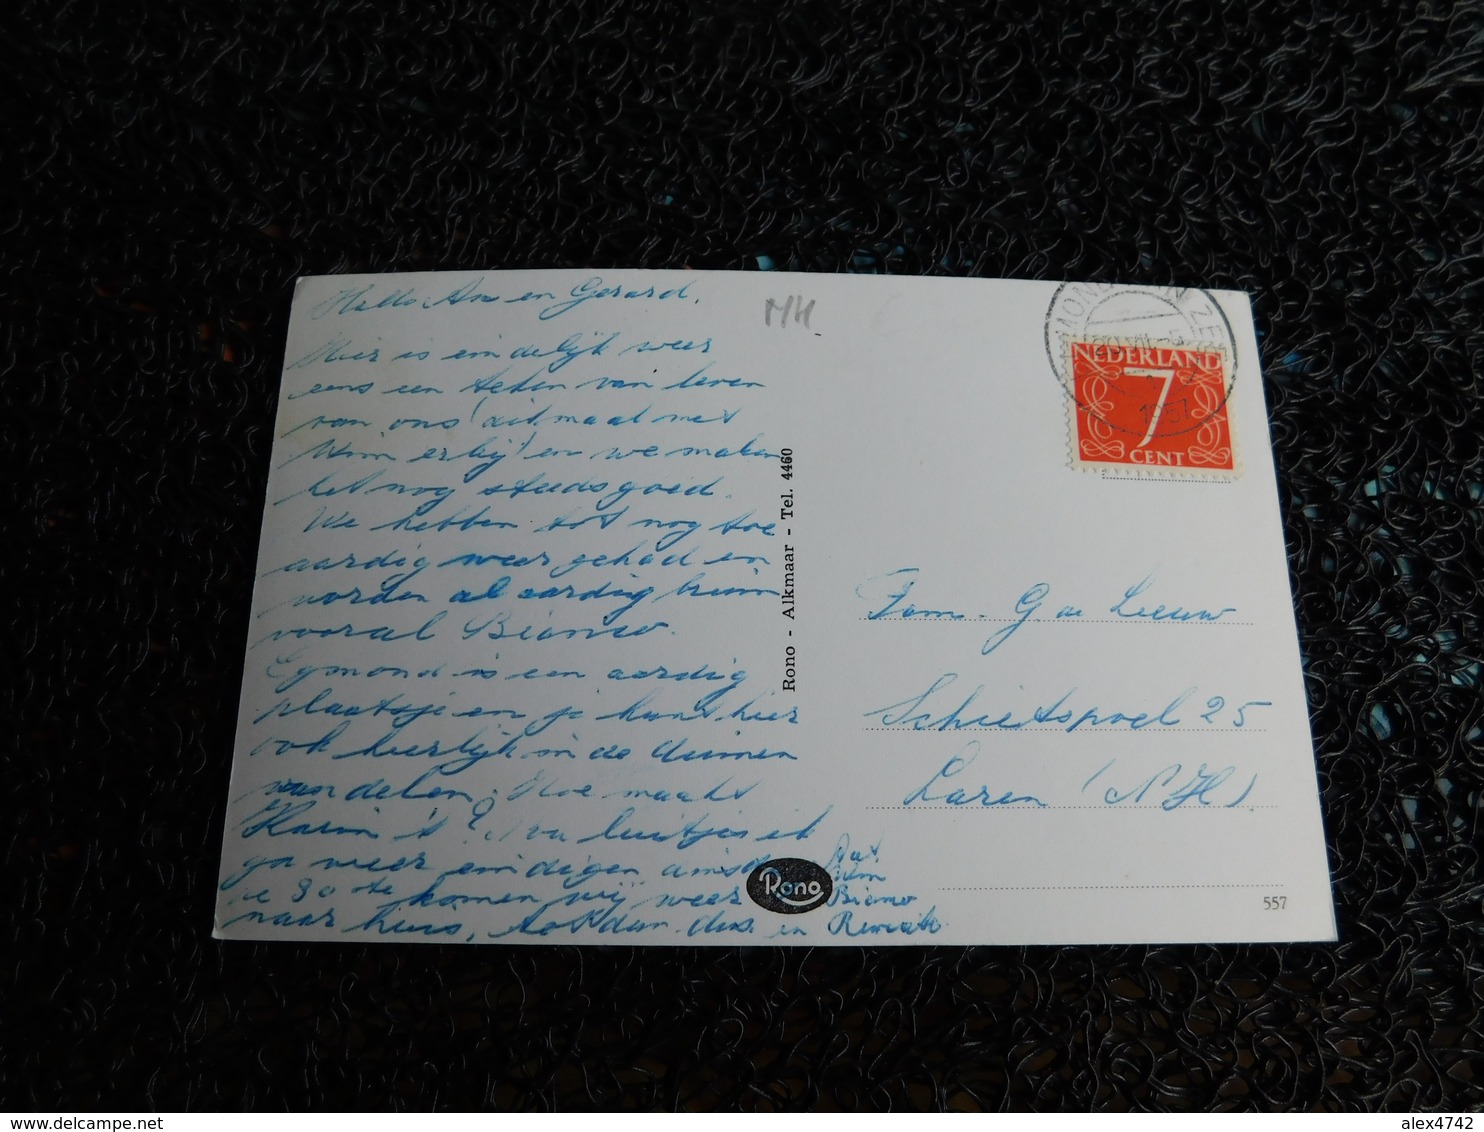 Hallo Ans en Gerard,
Hier is eindelijk weer
eens een teken van leven
van ons (ditmaal met
Wim erbij) en we maken
het nog steeds goed.
We hebben tot nog toe
aardig weer gehad en
worden al aardig bruin
vooral Bianca.
Egmond is een aardig
plaatsje en je kunt hier
ook heerlijk in de duinen
wandelen. Hoe maakt
Harm 't? Nou luitjes ik
ga weer eindigen
de 30ste komen wij weer
naar huis, tot dan dus en
Wim
Bianca
MH
Rono - Alkmaar - Tel. 4460
Rono
EGMOND AAN ZEE
1957
NEDERLAND
7
CENT
Fam. G de Leeuw
Schietspoel 25
Laren (N H)
557
alex4742